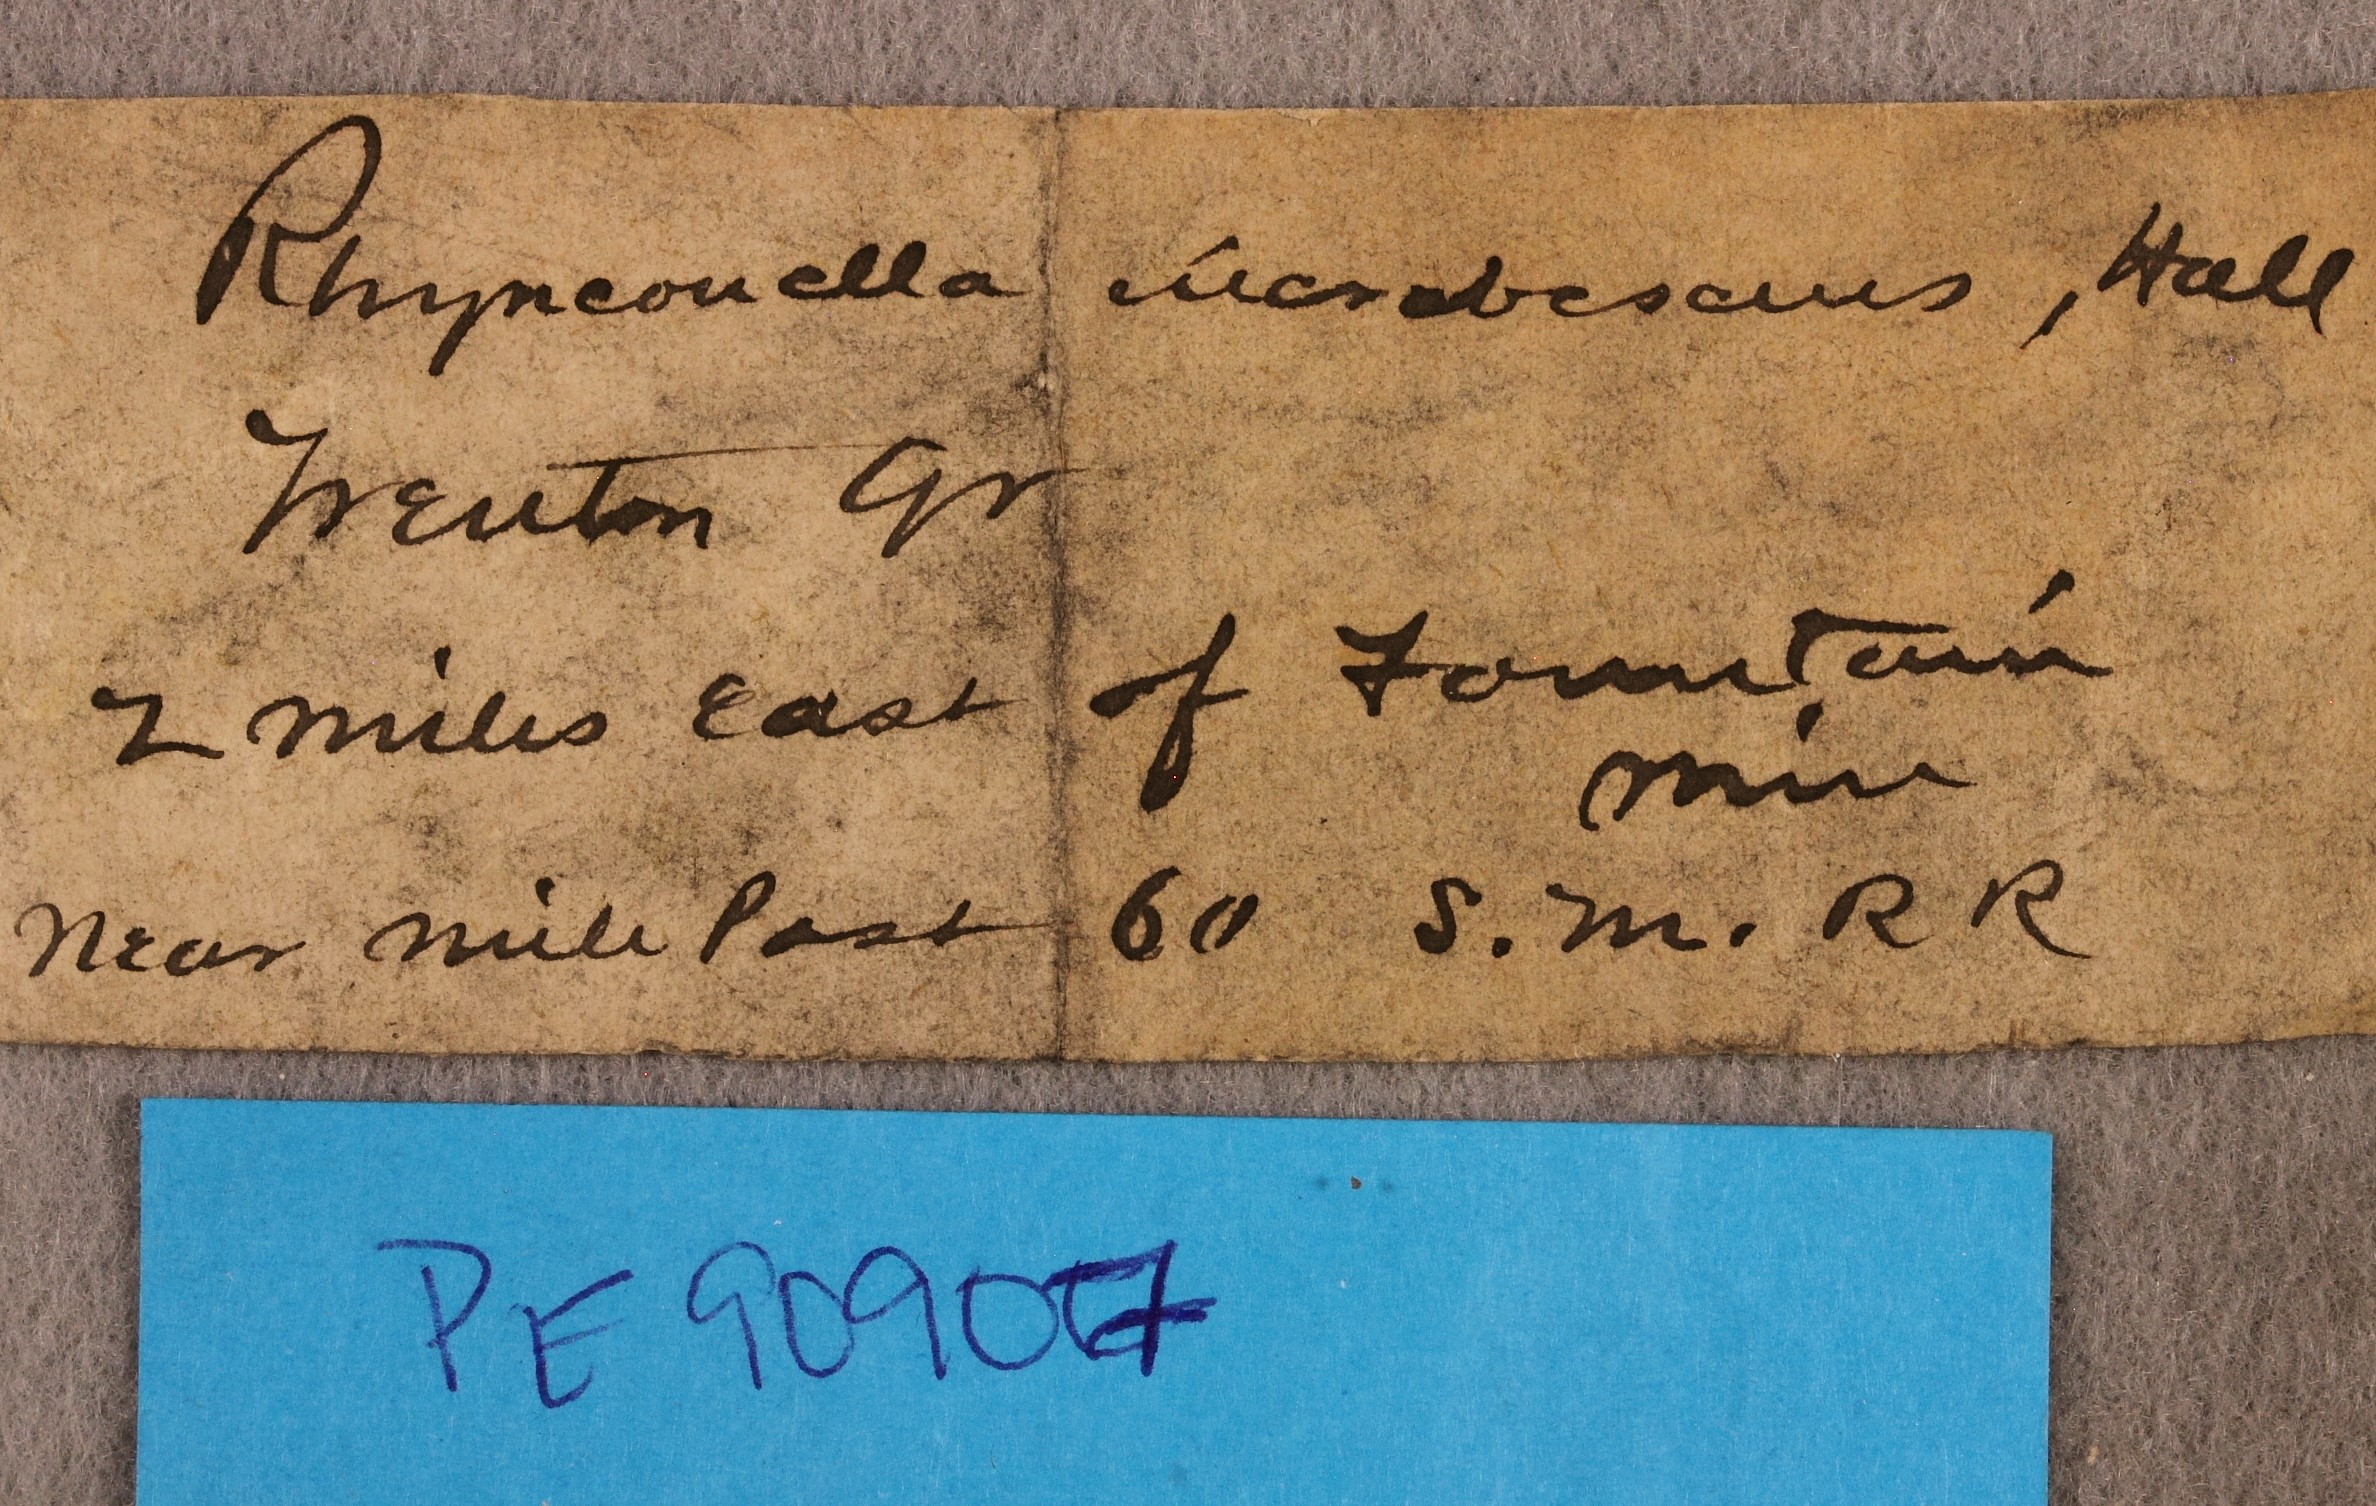 Rhynconella increbescens, Hall
Trenton Gr
2 miles East of Fountain
Minn
Near mile Post 60 S. M. R R
PE 90907